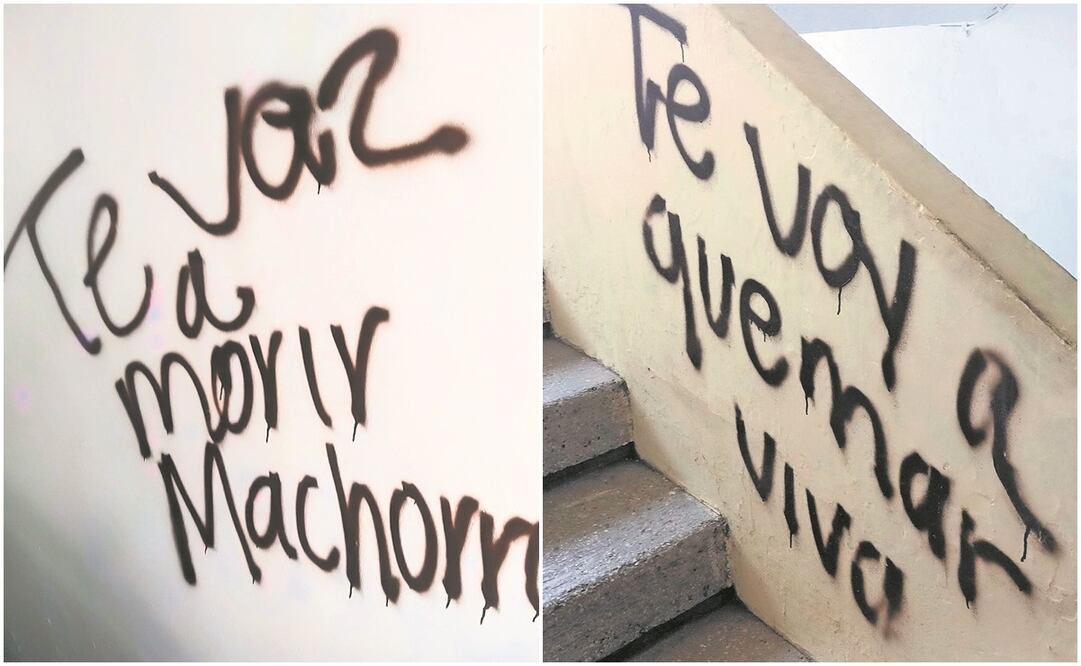 Te vaz
a
morir
Machorr
Te voy a
quemar
viva